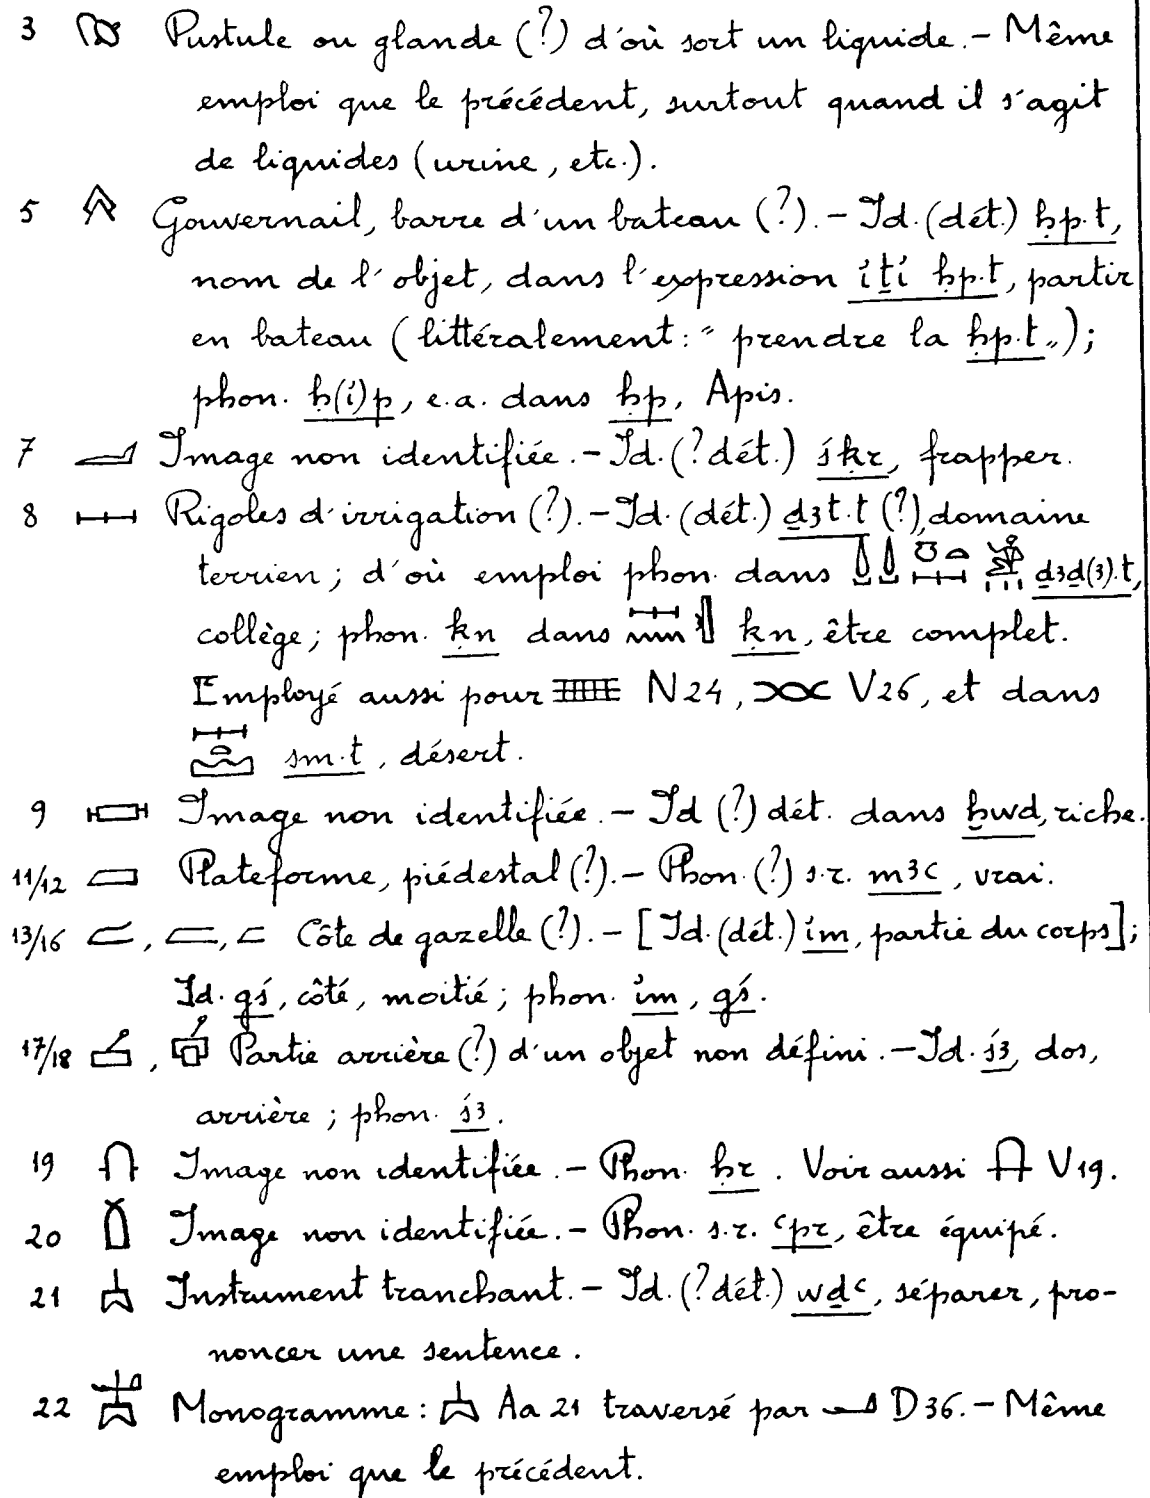 3 𓐏 Pustule ou glande (?) d'où sort un liquide. – Même
emploi que le précédent, surtout quand il s'agit
de liquides (urine, etc.).
5 𓐒 Gouvernail, barre d'un bateau (?). – Id. (dét.) ḥp.t,
nom de l'objet, dans l'expression ἰṯἰ ḥp.t, partir
en bateau (littéralement: "prendre la ḥp.t„);
phon. ḥ(ἰ)p, e.a. dans ḥp, Apis.
7 𓐔 Image non identifiée. – Id. (? dét.) śḳr, frapper.
8 𓐕 Rigoles d'irrigation (?). – Id. (dét.) ḏ3t.t (?), domaine
terrien; d'où emploi phon. dans 𓍑𓍑𓏌𓏏𓐕𓀀𓏥 ḏ3ḏ(3).t,
collège; phon. ḳn dans 𓐕𓈖𓏛 ḳn, être complet.
Employé aussi pour 𓈈 N24, 𓎝 V26, et dans
𓐕𓏏𓈉 sm.t, désert.
9 𓐖 Image non identifiée. – Id (?) dét. dans ḫwd, riche.
11/12 𓐙 Plateforme, piédestal (?). – Phon. (?) s.r. m3c, vrai.
13/16 𓐛, 𓐝, 𓐞 Côte de gazelle (?). – [Id. (dét.) ἰm, partie du corps];
Id. gś, côté, moitié; phon. ἰm, gś.
17/18 𓐟, 𓐠 Partie arrière (?) d'un objet non défini. – Id. ś3, dos,
arrière; phon. ś3.
19 𓐡 Image non identifiée. – Phon. ḥr. Voir aussi 𓎃 V19.
20 𓐢 Image non identifiée. – Phon. s.r. ꜥpr, être équipé.
21 𓐣 Instrument tranchant. – Id. (? dét.) wḏꜥ, séparer, pro-
noncer une sentence.
22 𓐤 Monogramme: 𓐣 Aa 21 traversé par 𓂝 D36. – Même
emploi que le précédent.